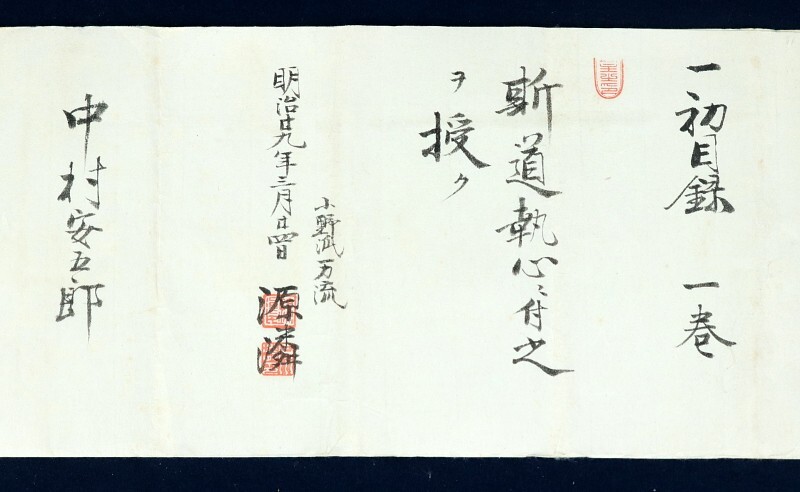 一初目録 一巻
斯道執心ニ付之
ヲ授ク
小野派一刀流
明治廿九年三月廿四日 源潾
中村安五郎